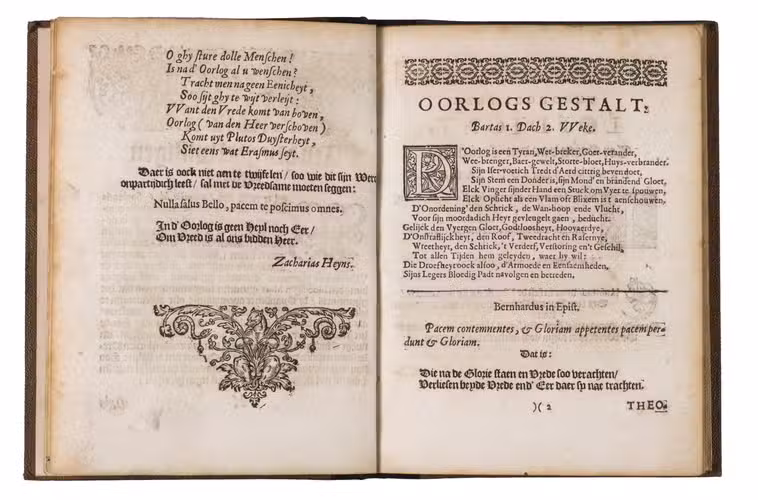 O ghy sture dolle Menschen!
Is na d' Oorlog al u wenschen?
Tracht men na geen Eenicheyt,
Soo sijt ghy te wijt verleyt:
VVant den Vrede komt van boven,
Oorlog (van den Heer verschoven)
Komt uyt Plutos Duysterheyt,
Siet eens wat Erasmus seyt.
Daer is oock niet aen te twijfelen / soo wie dit sijn Werc
onpartijdich leest / sal met de Vreedsame moeten seggen:
Nulla salus Bello, pacem te poscimus omnes.
In d' Oorlog is geen Heyl noch Eer /
Om Vred is al ons bidden Heer.
Zacharias Heyns.
OORLOGS GESTALT.
Bartas 1. Dach 2. VVeke.
D'Oorlog is een Tyran, Wee-breker, Goet-verander,
Wee-brenger, Baer-gewelt, Storte-bloet, Huys-verbrander.
Sijn Iser-voetich Tredt d'Aerd cittrig beven doet,
Sijn Stem een Donder is, sijn Mond' en brandend Gloet,
Elck Vinger sijnder Hand een Stuck om Vyer te spouwen,
Elck Opsicht als een Vlam oft Blixem is t'aenschouwen,
D'Onordening' den Schrick, de Wan-hoop ende Vlucht,
Voor sijn moordadich Heyr gevleugelt gaen, beducht.
Gelijck den Vyergen Gloet, Godloosheyt, Hoovaerdye,
D'Onstraflijckheyt, den Roof, Tweedracht en Rasernye,
Wreetheyt, den Schrick, 't Verderf, Verstoring en't Geschil,
Tot allen Tijden hem geleyden, waer hy wil:
Die Droefheyt oock alsoo, d'Armoede en Eensaemheden,
Sijns Legers Bloedig Padt navolgen en betreden.
Bernhardus in Epist.
Pacem contemnentes, & Gloriam appetentes pacem per-
dunt & Gloriam.
Dat is:
Die na de Glorie staen en Vrede soo verachten /
Verliesen beyde Vrede end' Eer daer sy nae trachten.
)( 2
THEO.